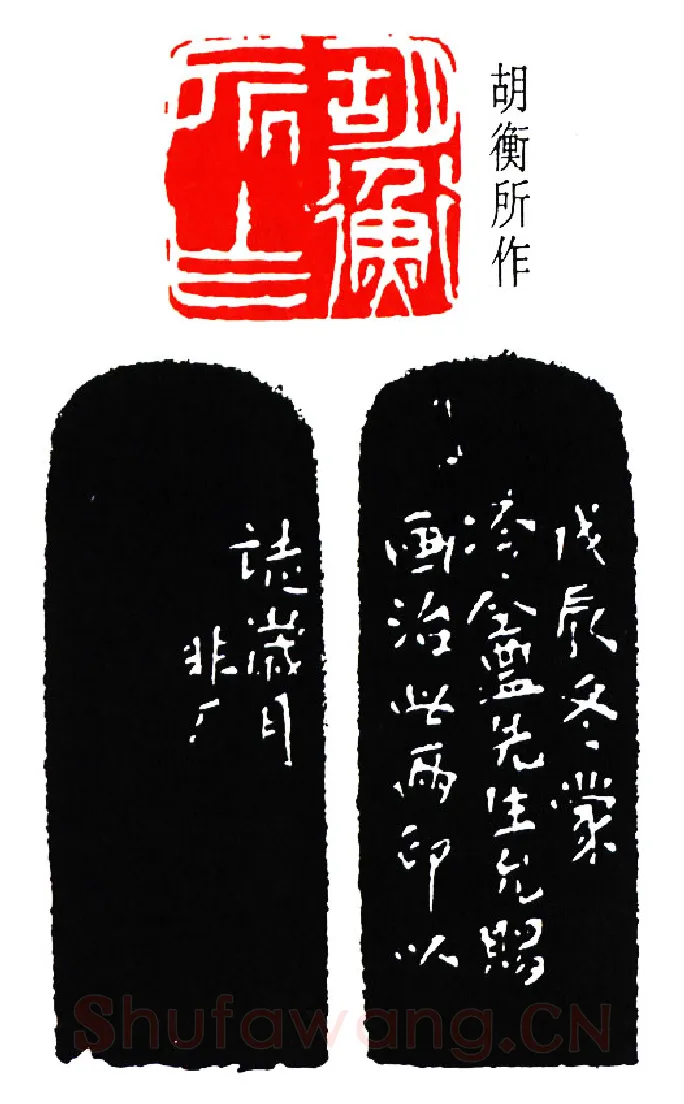 胡衡所作
胡衡
所乍
戊辰冬蒙
冷盦先生允賜
画治此兩印以
誌歲月
非厂
Shufawang.CN